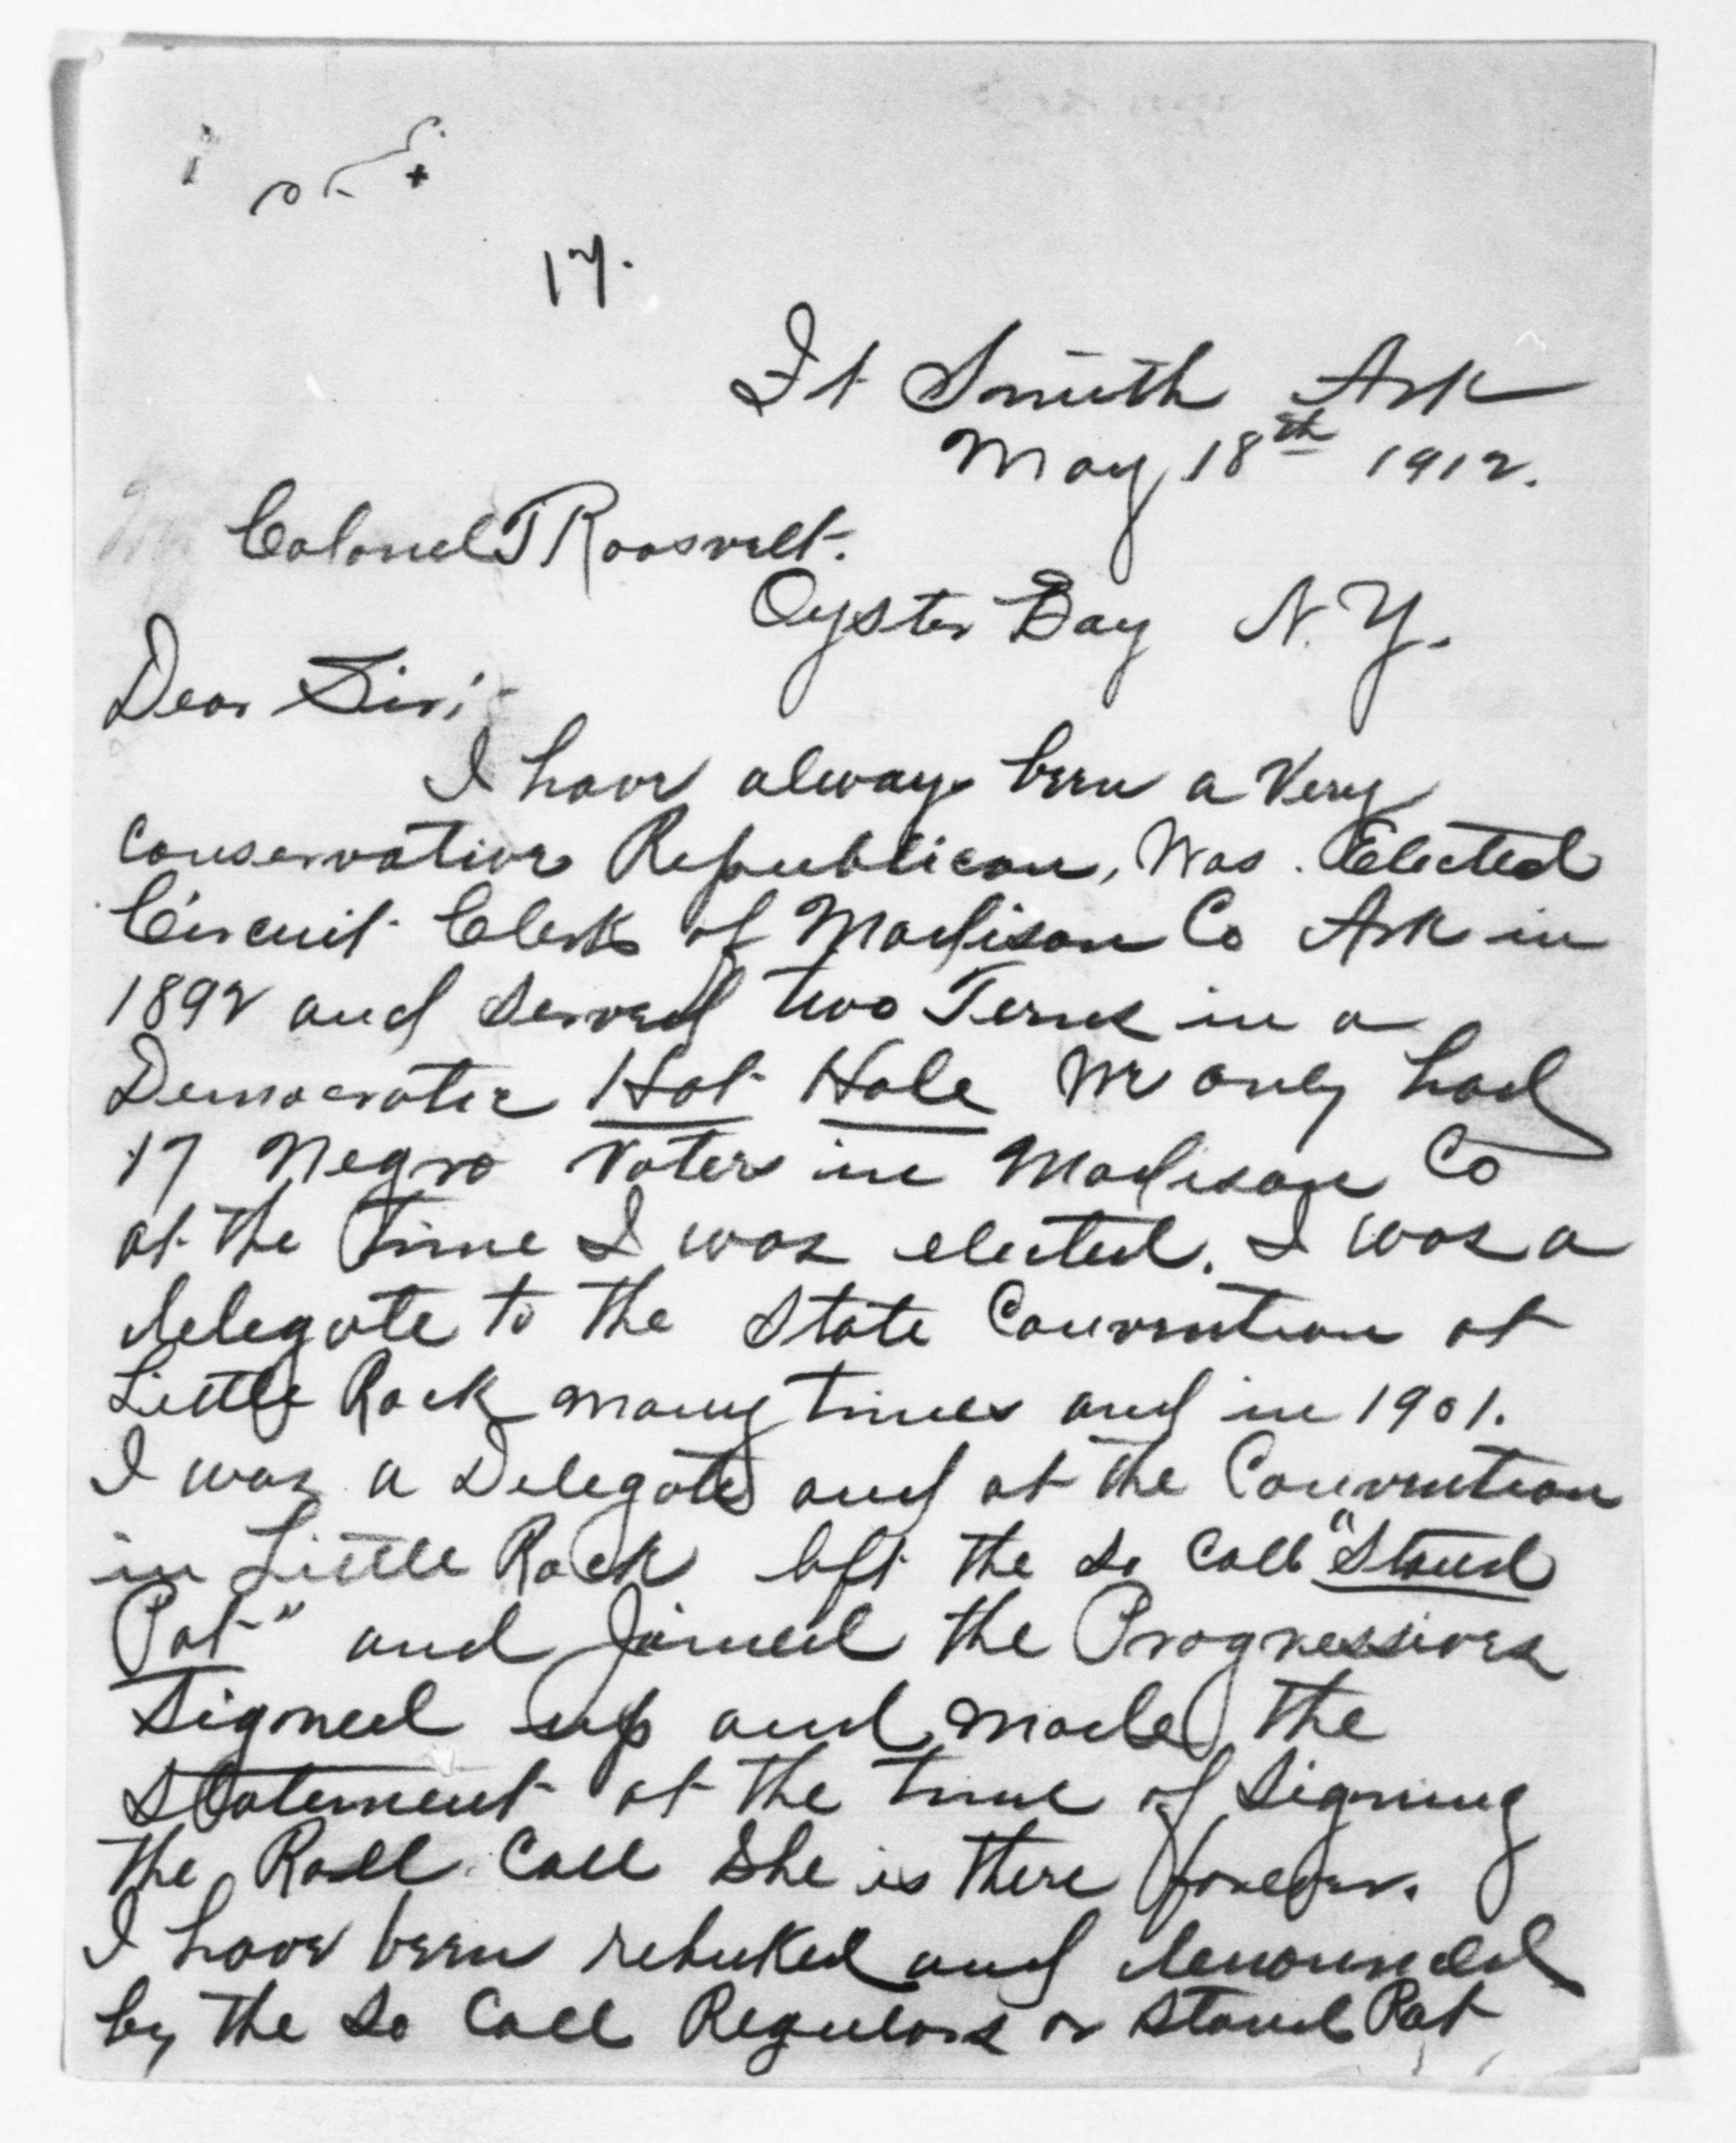 17.
Ft Smith Ark
May 18th 1912.
Colonel T Roosvelt.
Oyster Bay N. Y.
Dear Sir;-
I have always been a Very
conservative Republican, Was. Elected
Circuit Clerk of Madison Co Ark in
1892 and served two Terms in a
Democratic Hot Hole We only had
17 Negro Voters in Madison Co
at the Time I was elected. I was a
delegate to the State Convention at
Little Rock many times and in 1901.
I was a Delegate and at the Convention
in Little Rock left the so Call "Stand
Pat" and Joined the Progressives
Signed up and made the
statement at the time of signing
the Roll Call She is there forever.
I have been rebuked and denounced
by the so Call Regulars or Stand Pat